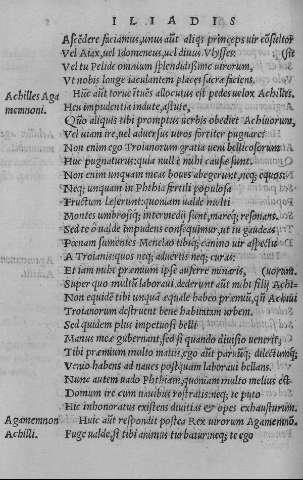 ILIADIS
Ascēdere faciamus, unus aūt aliqs princeps uir cōsultor
Vel Aiax, uel Idomeneus, uel diuus Vlysses: (sit
Vel tu Pelide omnium splendidissime uirorum,
Vt nobis longe iaculantem places sacra faciens.
Achilles Aga Huic aūt torue itués allocutus est pedes uelox Achilles.
memnoni. Heu impudentia indute, astute,
Quō aliquis tibi promptus uerbis obediet Achiuorum,
Vel uiam ire, uel aduersus uiros fortiter pugnare?
Non enim ego Troianorum gratia ueni bellicosorum
Huc pugnaturus: quia null' mihi causæ sunt.
Non enim unquam meas boues abegerunt, neq; equos:
Neq; unquam in Phthia fertili populosa
Fructum læserunt: quoniam ualde multi
Montes umbrosiq; intermedij sunt, mareq; resonans.
Sed te ô ualde impudens consequimur, ut tu gaudeas
Pœnam sumentes Menelao tibiq; canino uir aspectu
A Troianis: quos neq; aduertis neq; curas:
Et iam mihi præmium ipse auferre minaris, (uorum.
Super quo multū laboraui, dederunt aūt mihi filij Achi-
Non equidē tibi unquā equale habeo præmiū, qn̄ Achiui
Troianorum destruent bene habitatam urbem.
Sed quidem plus impetuosi belli
Manus meæ gubernant, sed si quando diuisio uenerit,
Tibi præmium multo maius, ego aūt paruūq; delectumq;
Venio habens ad naues postquam laboraui bellans.
Nunc autem uado Phthiam, quoniam multo melius est
Domum ire cum nauibus rostratis: neq; te puto
Hic inhonoratus existens diuitias & opes exhausturum.
Agamemnon Huic aūt respondit postea Rex uirorum Agamemnō.
Achilli. Fuge ualde, si tibi animus turbatur: neq; te ego